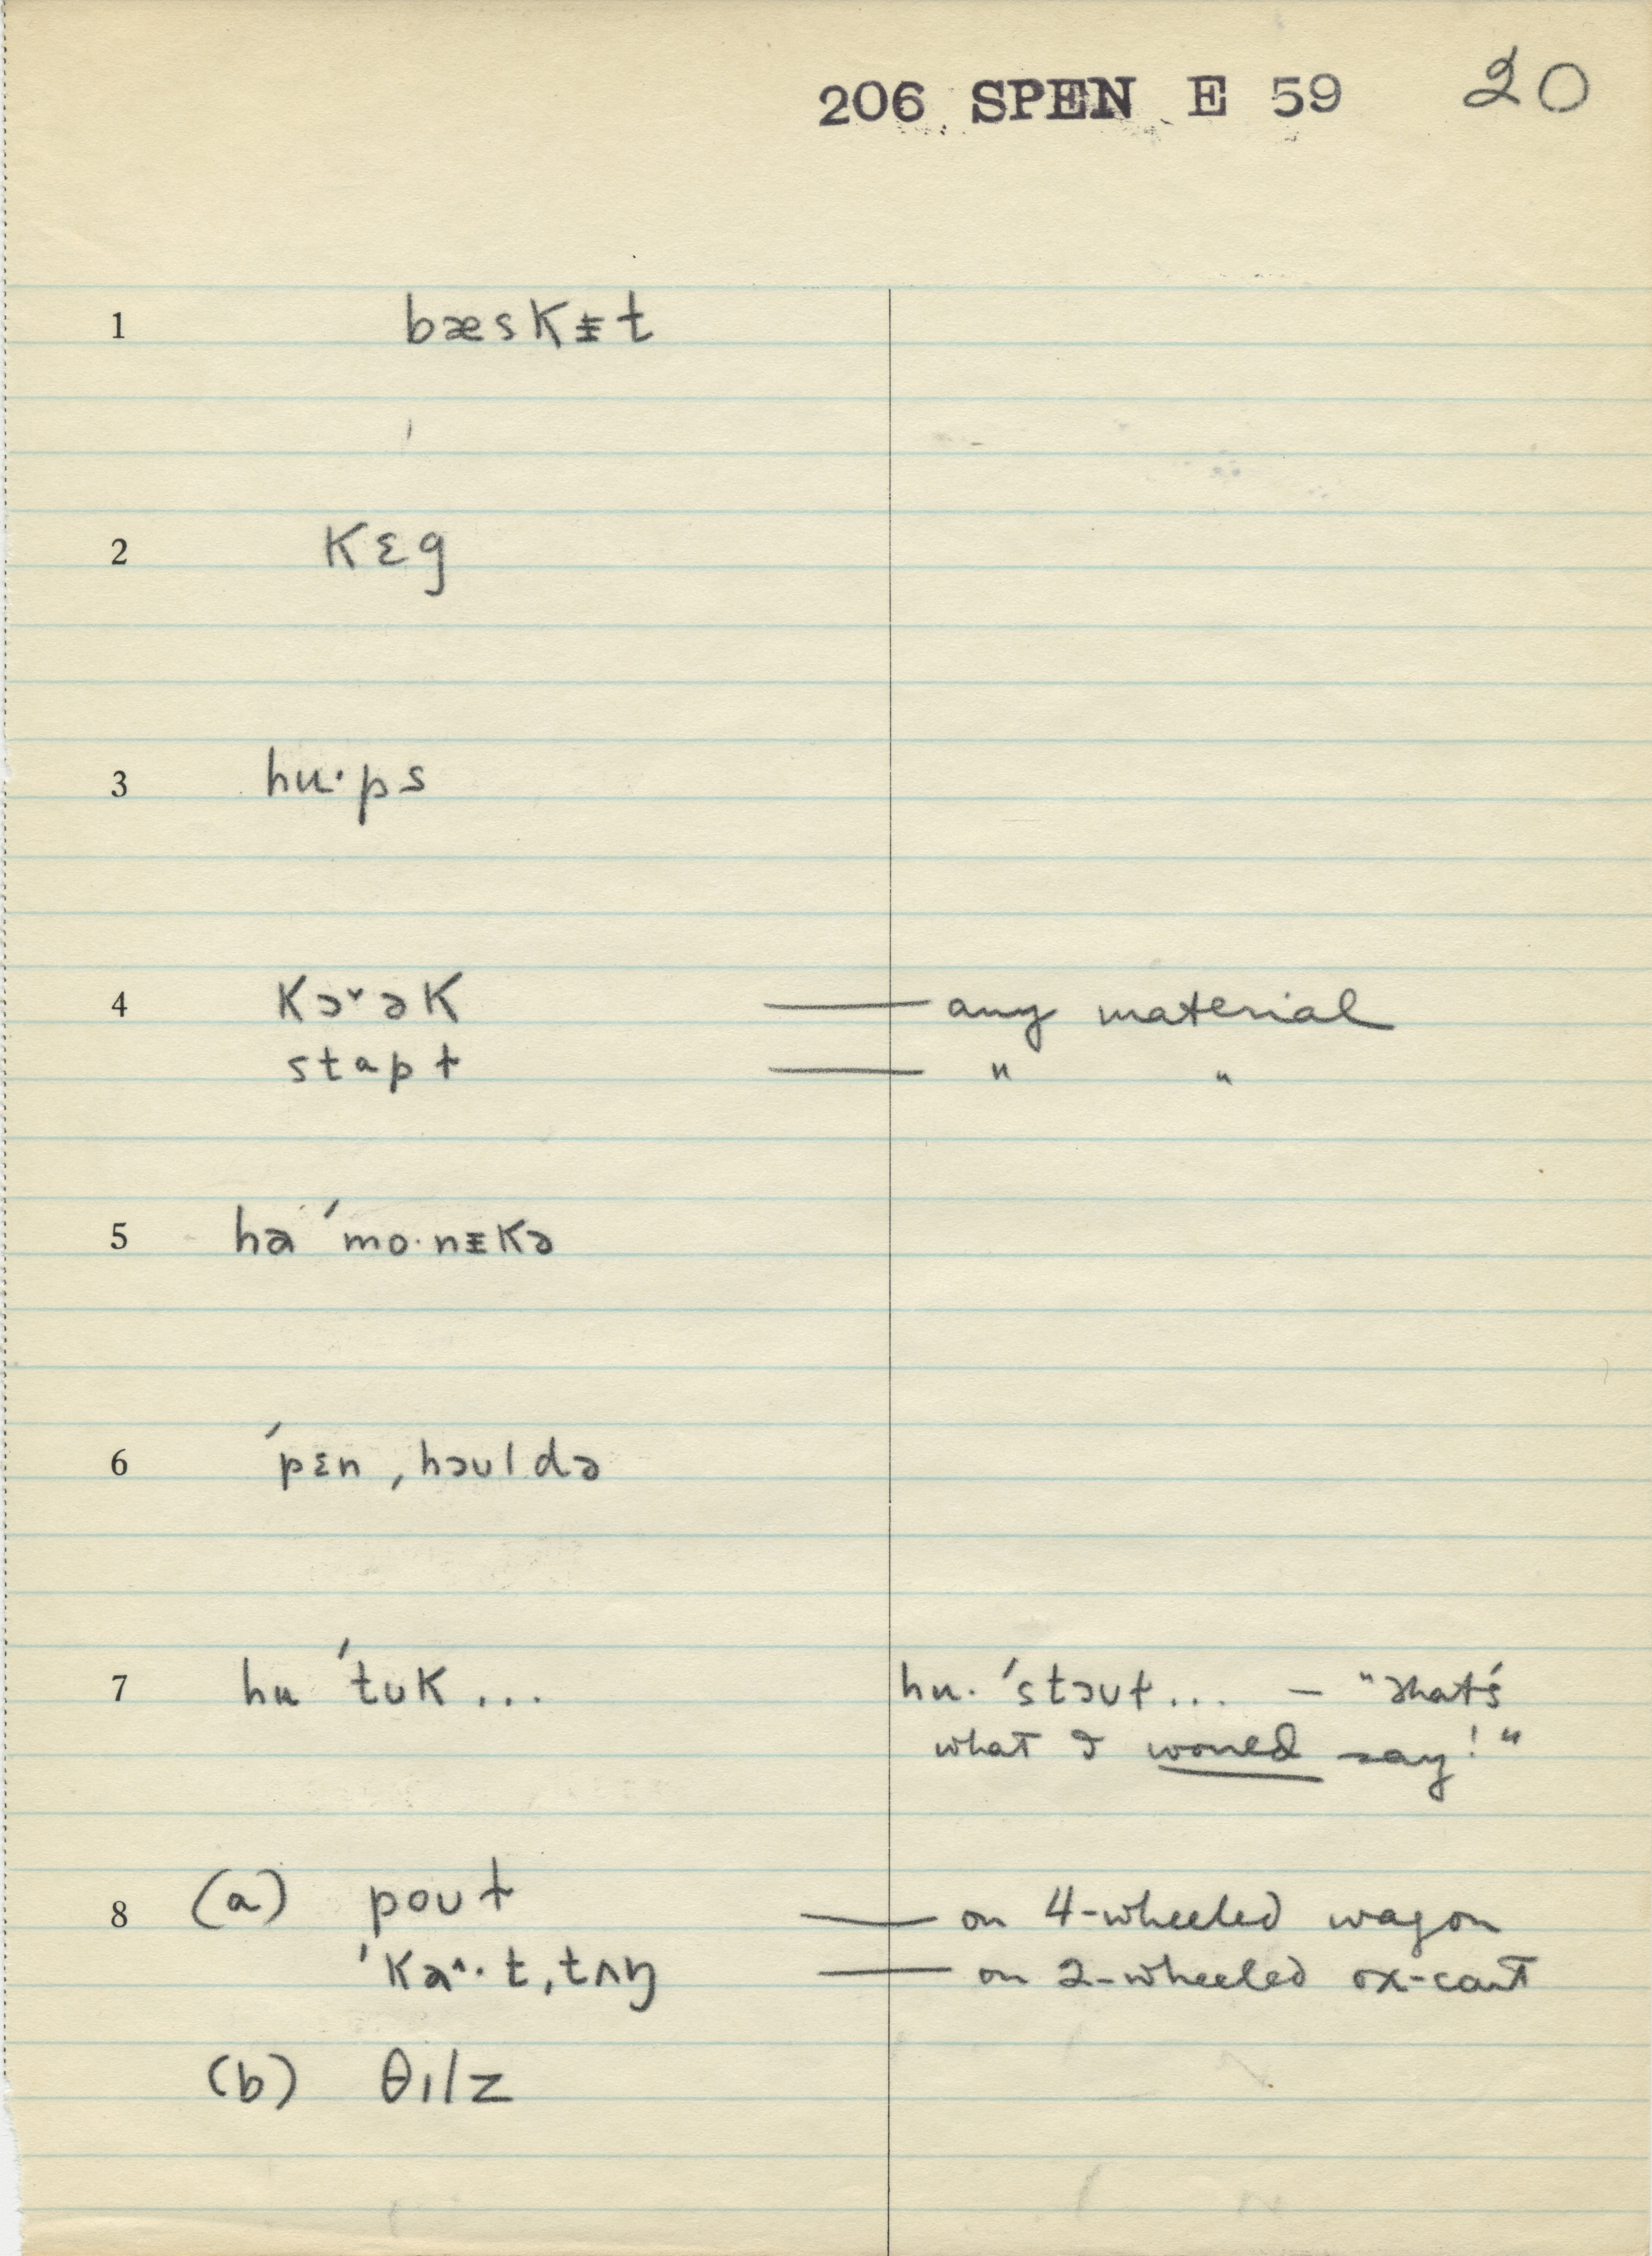 206 SPEN E 59 20
1 bæskᵻt
2 kɛg
3 hu·ps
4 kɔˇək — any material
stɑpɫ — " "
5 hɑ ˈmo·nᵻkə
6 ˈpɛn ˌhɔʊldə
7 hu ˈtʊk ... hu· ˈstɔʊɫ ... — "That's
what I would say!"
8 (a) poʊɫ — on 4-wheeled wagon
ˈkɑ^·t ˌtʌŋ — on 2-wheeled ox-cart
(b) θɪlz